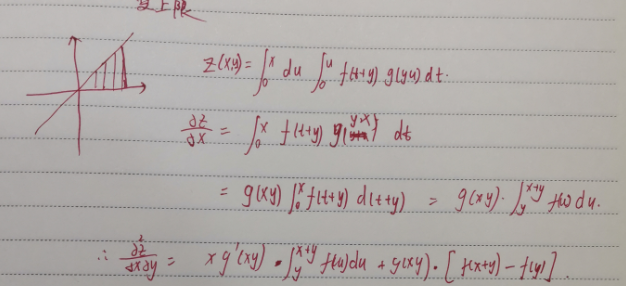 变上限
z(xy) = ∫₀ˣ du ∫₀ᵘ f(t+y) g(yu) dt.
∂z/∂x = ∫₀ˣ f(t+y) g(y·x) dt
= g(xy) ∫₀ˣ f(t+y) d(t+y) = g(xy)·∫_y^{x+y} f(u) du.
∴ ∂²z/∂x∂y = x g'(xy) · ∫_y^{x+y} f(u) du + g(xy)·[f(x+y) - f(y)].